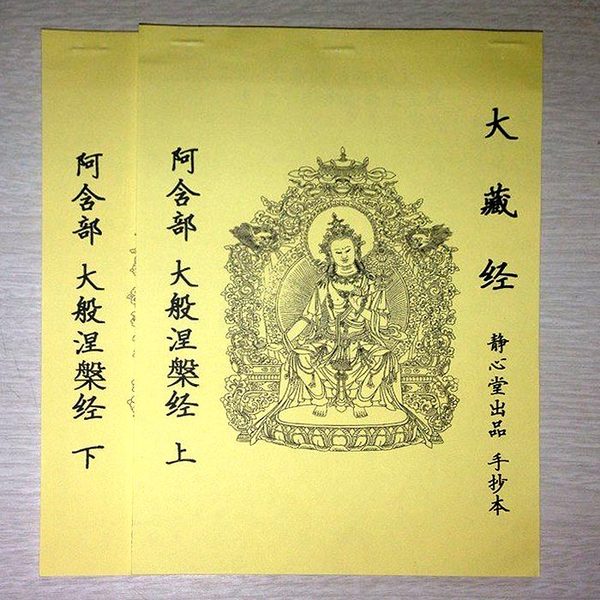 大藏经
静心堂出品 手抄本
阿含部 大般涅槃经 上
阿含部 大般涅槃经 下